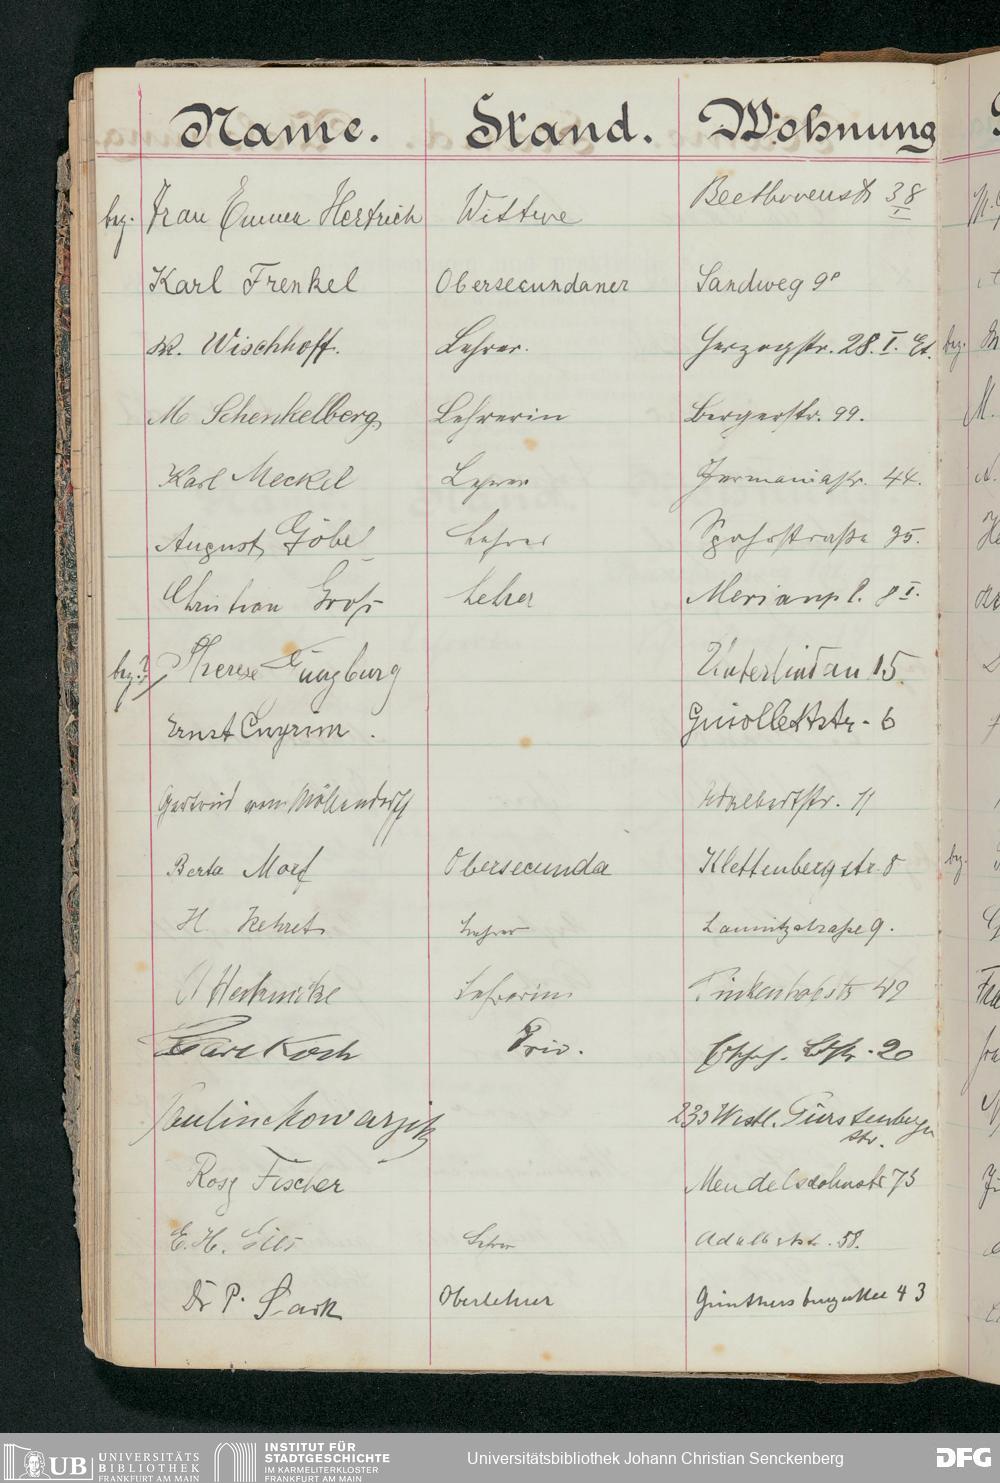 Name. Stand. Wohnung
bez. Frau Emma Hertrich Wittwe Beethovenstr 38 I
Karl Frenkel Obersecundaner Sandweg 9
K. Wischhoff. Lehrer. Herzogstr. 28. I. Et.
M Schenkelberg Lehrerin Bergerstr. 99.
Karl Meckel Lehrer Germaniastr. 44.
August Göbel Lehrer Spohrstraße 35.
Christian Groß Lehrer Merianpl. 8 I.
bez.? Therese Günzburg Unterlindau 15.
Ernst Cnyrim. Guiollettstr. 6
Gertrud von Möllendorff Adalbertstr. 11
Berta Morf Obersecunda Klettenbergstr. 8
H Kehret Lehrer Launitzstraße 9.
Lehrerin Finkenhofstr 42
Carl Koch Priv. 20
Pauline Kowarzik 233 Westl. Fürstenberger
str.
Rosy Fischer Mendelssohnstr 75
E. H. Lehrer Adalbertstr. 58.
Dr P. Sark Oberlehrer Günthersburgallee 43
UB UNIVERSITÄTS
BIBLIOTHEK
FRANKFURT AM MAIN
INSTITUT FÜR
STADTGESCHICHTE
IM KARMELITERKLOSTER
FRANKFURT AM MAIN
Universitätsbibliothek Johann Christian Senckenberg
DFG